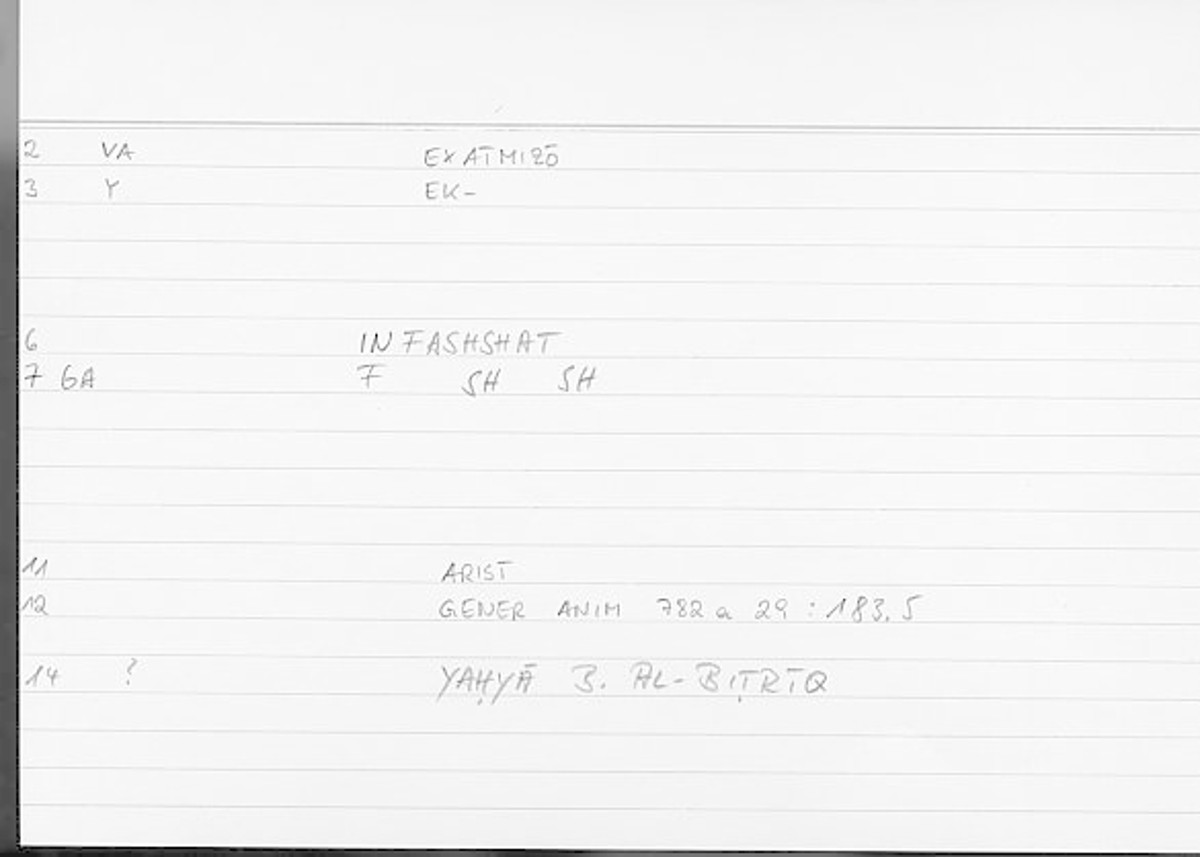 2 VA EXATMIZŌ
3 Y EK-
6 INFASHSHAT
7 6A F SH SH
11 ARIST
12 GENER ANIM 782 a 29 : 183,5
14 ? YAḤYĀ B. AL-BIṬRĪQ